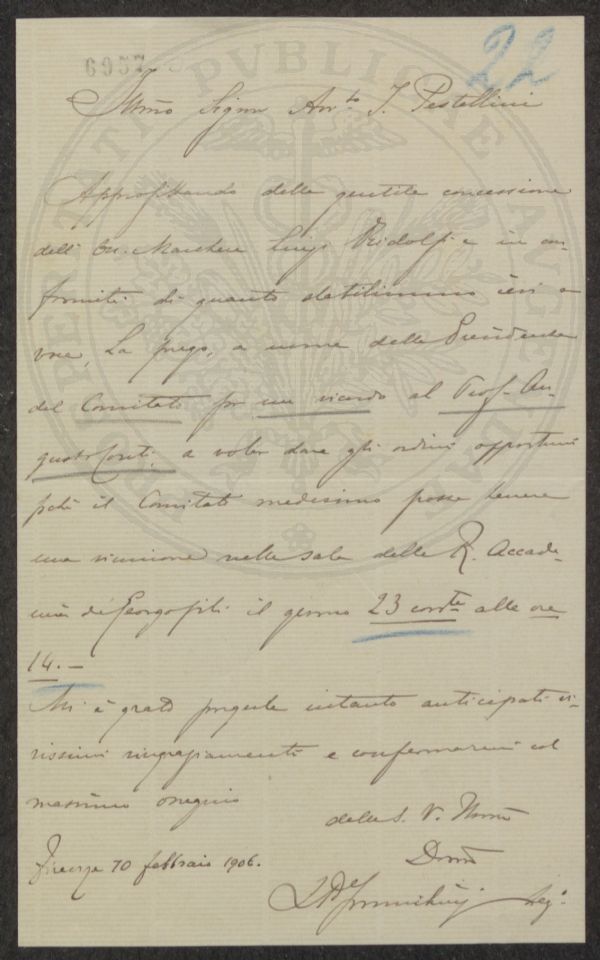 6957
22
Illmo Signor Avv.to I. Pestellini
Approfittando della gentile concessione
dell' On. Marchese Luigi Ridolfi e in con-
formità di quanto stabilimmo ieri a
voce, La prego, a nome della Presidenza
del Comitato per un ricordo al Prof. Au-
gusto Conti, a voler dare gli ordini opportuni
pchè il Comitato medesimo possa tenere
una riunione nella sala della R. Accade-
mia dei Georgofili il giorno 23 corrte alle ore
14.-
Mi è grato porgerle intanto anticipati vi-
vissimi ringraziamenti e confermarmi col
massimo ossequio
della S. V. Illma
Firenze 10 febbraio 1906.
Devmo
Seg.o